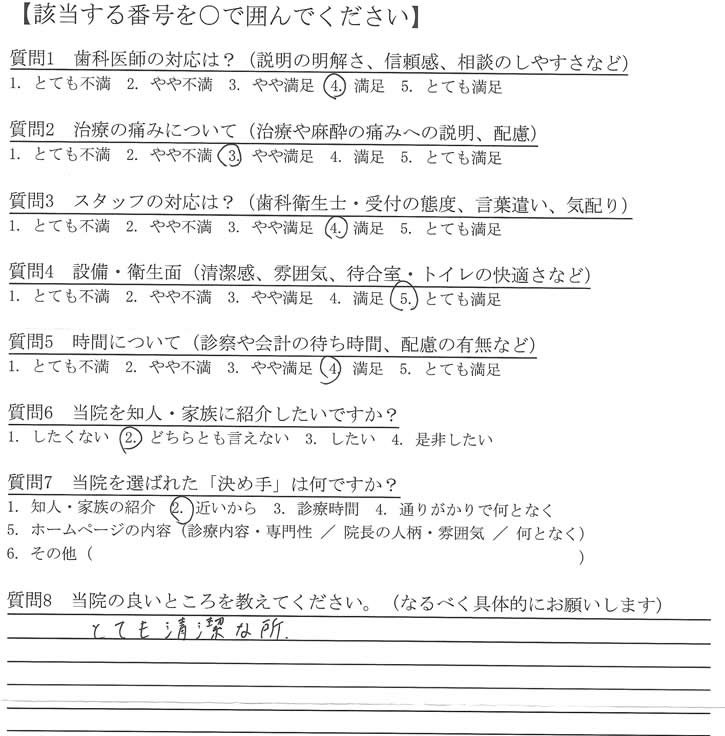 【該当する番号を○で囲んでください】
質問1　歯科医師の対応は？（説明の明解さ、信頼感、相談のしやすさなど）
1. とても不満 2. やや不満 3. やや満足 4. 満足 5. とても満足
質問2　治療の痛みについて（治療や麻酔の痛みへの説明、配慮）
1. とても不満 2. やや不満 3. やや満足 4. 満足 5. とても満足
質問3　スタッフの対応は？（歯科衛生士・受付の態度、言葉遣い、気配り）
1. とても不満 2. やや不満 3. やや満足 4. 満足 5. とても満足
質問4　設備・衛生面（清潔感、雰囲気、待合室・トイレの快適さなど）
1. とても不満 2. やや不満 3. やや満足 4. 満足 5. とても満足
質問5　時間について（診察や会計の待ち時間、配慮の有無など）
1. とても不満 2. やや不満 3. やや満足 4 満足 5. とても満足
質問6　当院を知人・家族に紹介したいですか？
1. したくない 2. どちらとも言えない 3. したい 4. 是非したい
質問7　当院を選ばれた「決め手」は何ですか？
1. 知人・家族の紹介 2. 近いから 3. 診療時間 4. 通りがかりで何となく
5. ホームページの内容（診療内容・専門性 ／ 院長の人柄・雰囲気 ／ 何となく）
6. その他（　　　　　　　　　　）
質問8　当院の良いところを教えてください。（なるべく具体的にお願いします）
とても清潔な所.